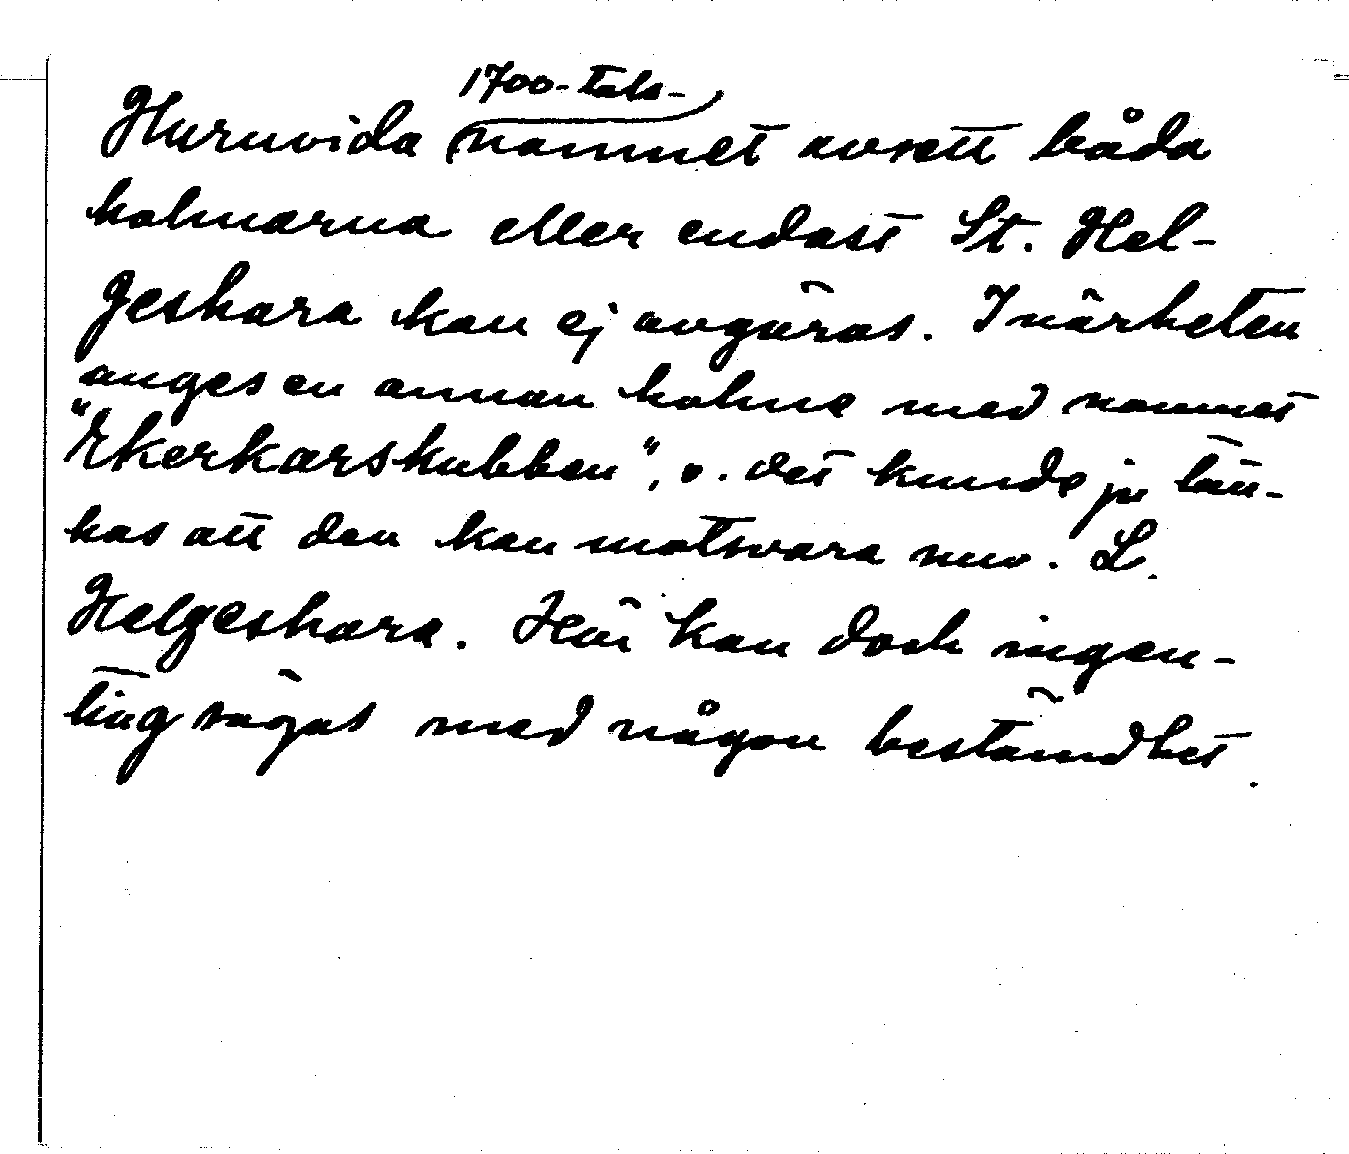 1700-tals-
Huruvida namnet avsett båda
holmarna eller endast St. Hel-
geshara kan ej avgöras. I närheten
anges en annan holme med namnet
"Ekerkarskubben", o. det kunde ju tän-
kas att den kan motsvara nuv. L.
Helgeshara. Här kan dock ingen-
ting sägas med någon bestämdhet.